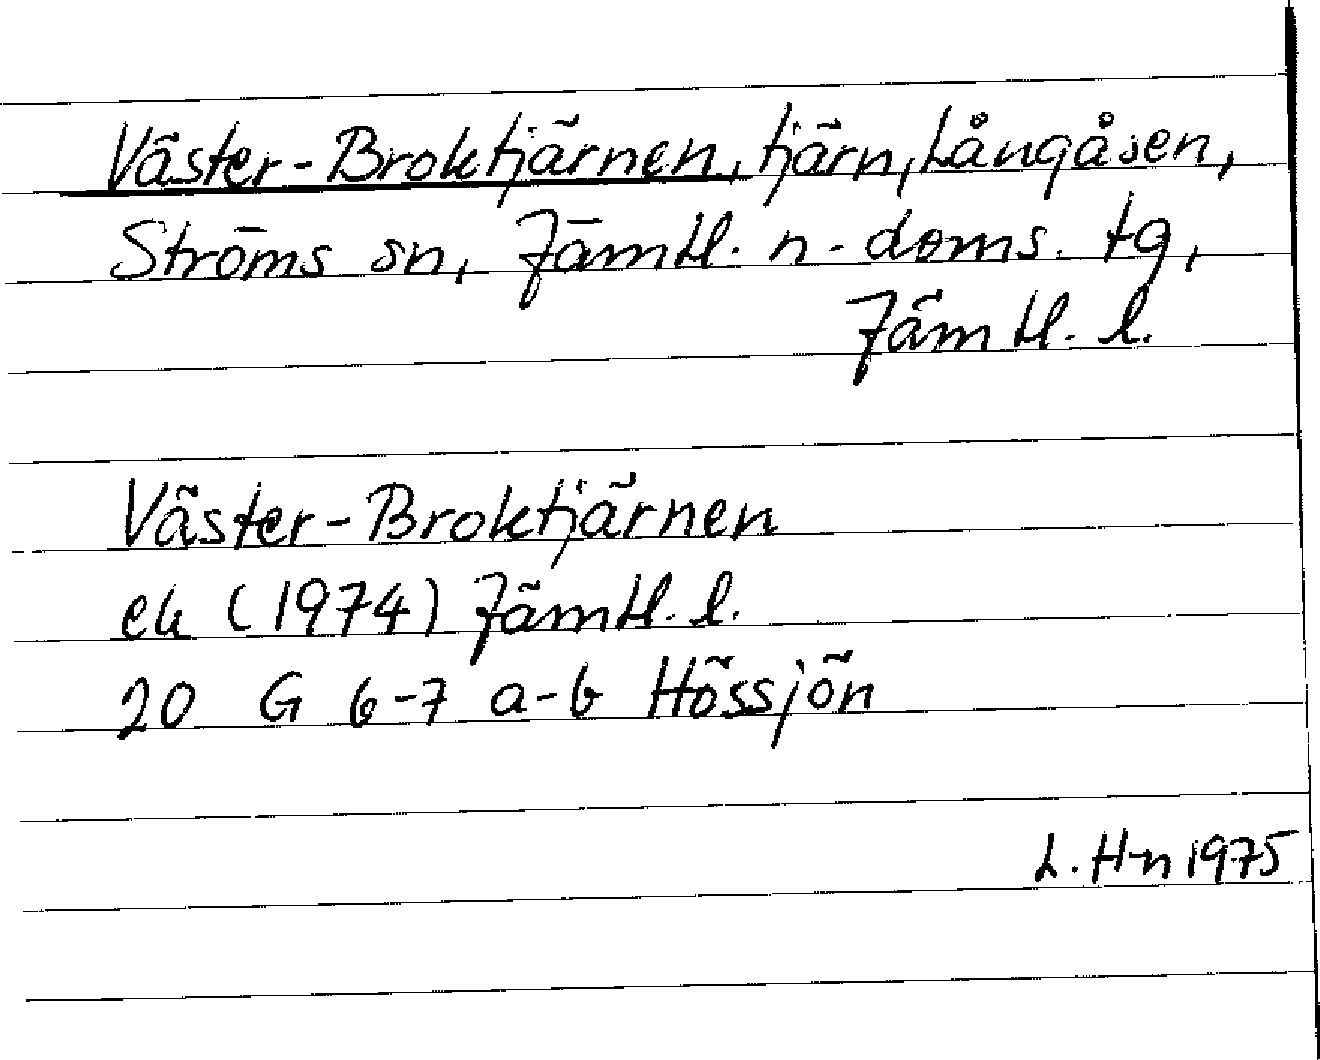 Väster-Broktjärnen, tjärn, Långåsen,
Ströms sn, Jämtl. n. doms. tg,
Jämtl. l.
Väster-Broktjärnen
ek (1974) Jämtl. l.
20 G 6-7 a-b Hössjön
L. H-n 1975